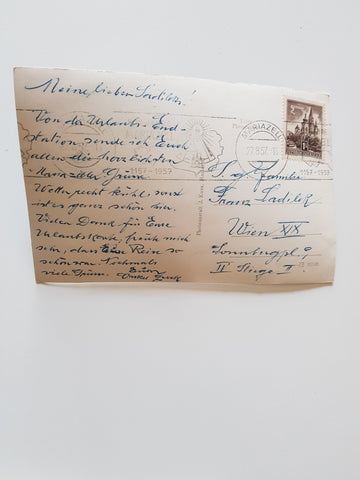 Meine lieben Sadileks!
Von der Urlaubs-End-
station sende ich Euch
allen die herzlichsten
Mariazeller Grüsse.
Wetter recht kühl, sonst
ist es ganz schön hier.
Vielen Dank für Eure
Urlaubskarte, freute mich
sehr, dass Eure Reise so
schön war. Nochmals
viele Grüsse. Euer
Onkel
1157-1957
MARIAZELL
27.8.57
1157-1957
S. g. Familie
Franz Sadilek
Wien XIX
Sonnbergpl. 9
IV. Stiege II.